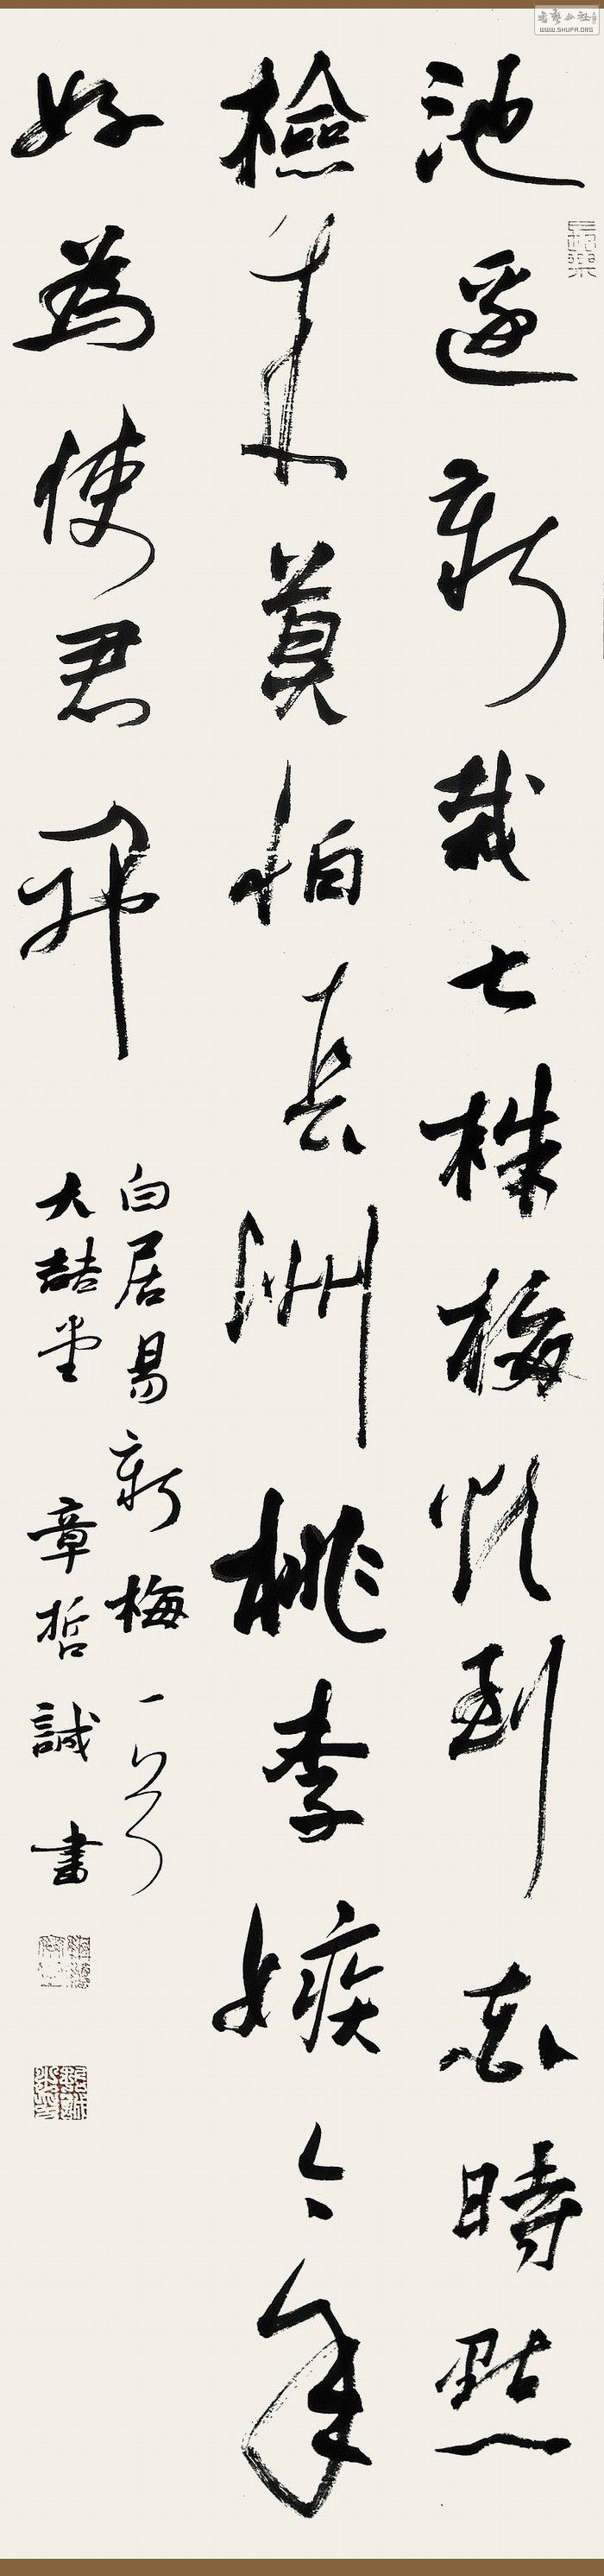 池邊新栽七株梅欲到花時點
檢來莫怕長洲桃李嫉今年
好為使君開
白居易新梅一首
大喆堂 章哲誠書
WWW.SHUFA.ORG